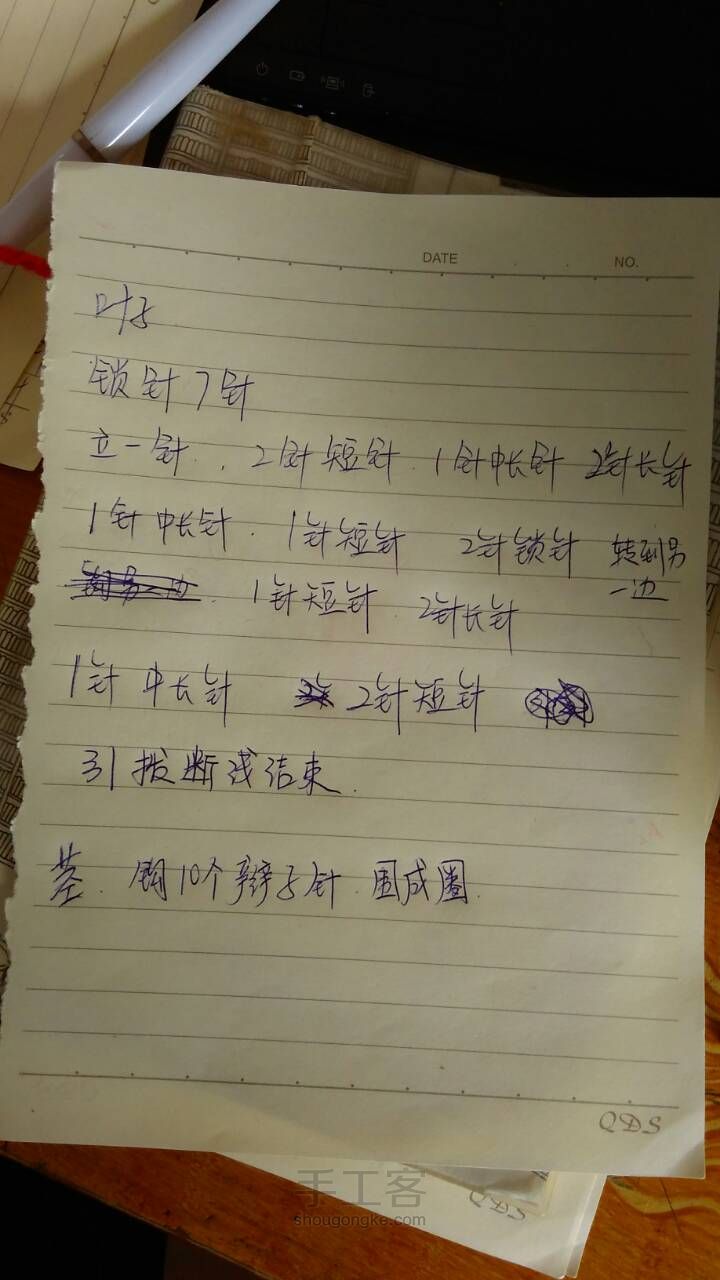 DATE NO.
叶子
锁针7针
立一针.. 2针短针. 1针中长针 2针长针
1针中长针. 1针短针 2针锁针 转到另
一边
. 1针短针. 2针长针
1针中长针 2针短针
引拔断线结束.
茎. 钩10个辫子针. 围成圈.
QDS
手工客
QDS
shougongke.com